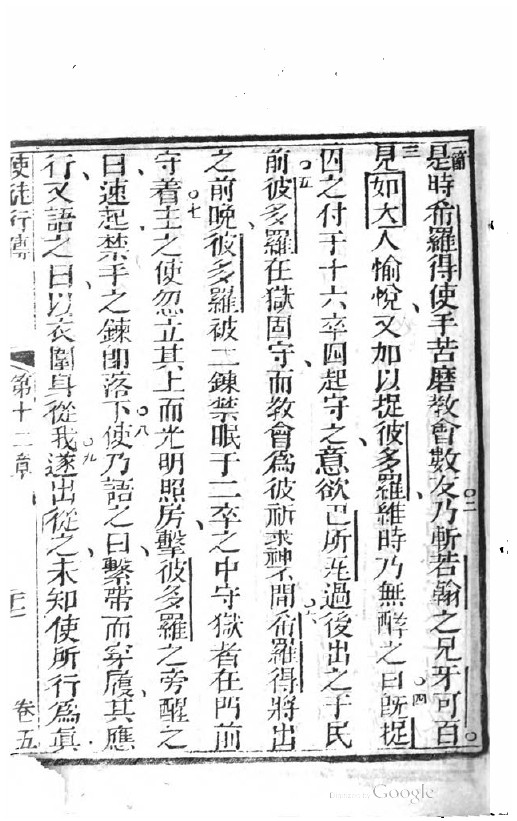 一節 是時希羅得使手苦磨教會數友乃斬若翰之兄牙可百
三 見如大人愉悅又加以捉彼多羅維時乃無酵之日既捉
囚之付于十六卒囘起守之意欲巴所過後出之于民
前彼多羅在獄固守而教會為彼祈求神不間希羅得將出
之前晚彼多羅被二鍊禁眠于二卒之中守獄者在門前
守着主之使忽立其上而光明照房擊彼多羅之旁醒之
曰速起禁手之鍊即落下使乃語之曰繫帶而穿履其應
行又語之曰以衣圍身從我遂出從之未知使所行為真
使徒行傳 第十二章 卷五
Google